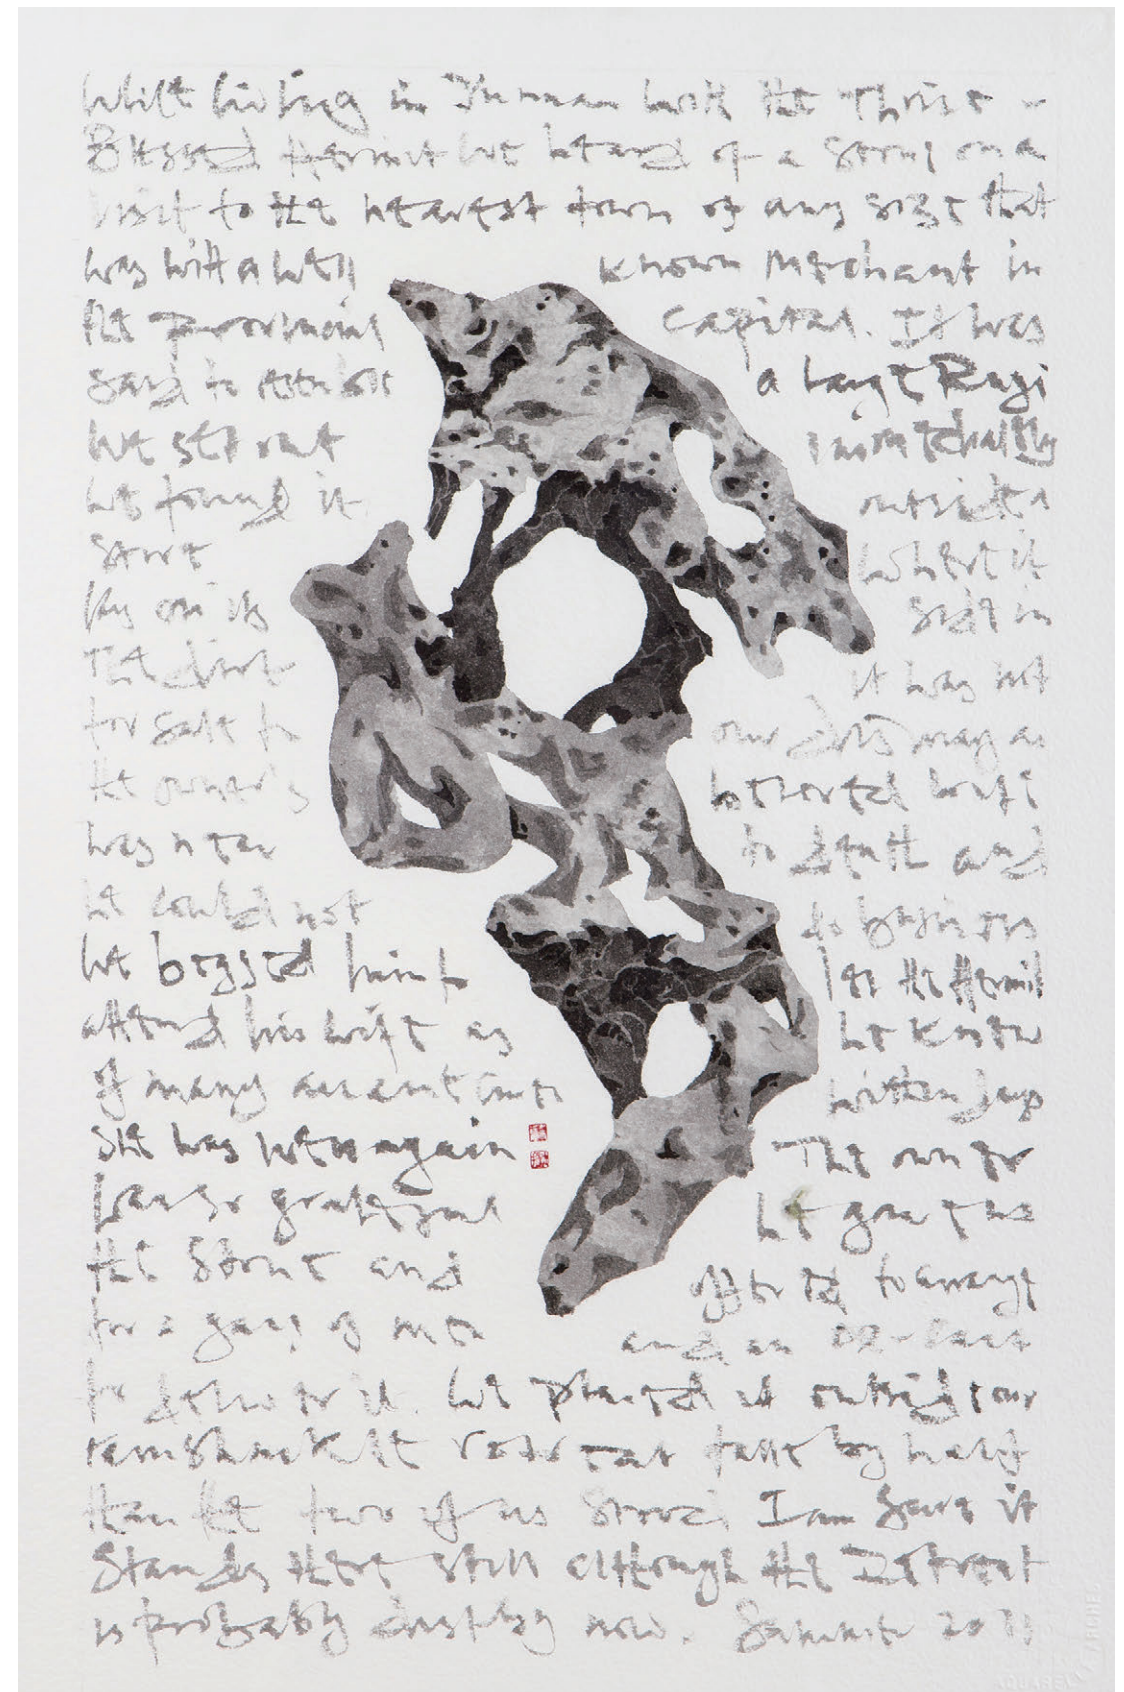 whilst living in Yunnan with the Thrice-
Blessed Hermit we heard of a stone on a
visit to the nearest town of any size that
was with a well known merchant in
the provincial capital. It was
said to a large Rugi
we set out
we found it outside a
store where it
lay on its side in
the dirt it was not
for sale to our dismay as
the owner's wife
was near to death and
he could not do business
we begged him let the Hermit
attend his wife as he knew
of many ancient written
she was when again The owner
was so grateful he gave us
the stone and offered to arrange
for a gang of men and an ox-cart
to deliver it. We planted it outside our
ramshackle taller by half
than the two of us stood I am sure it
stands there still although the Retreat
is probably now. Summer 2011
AQUARELLE ARCHES